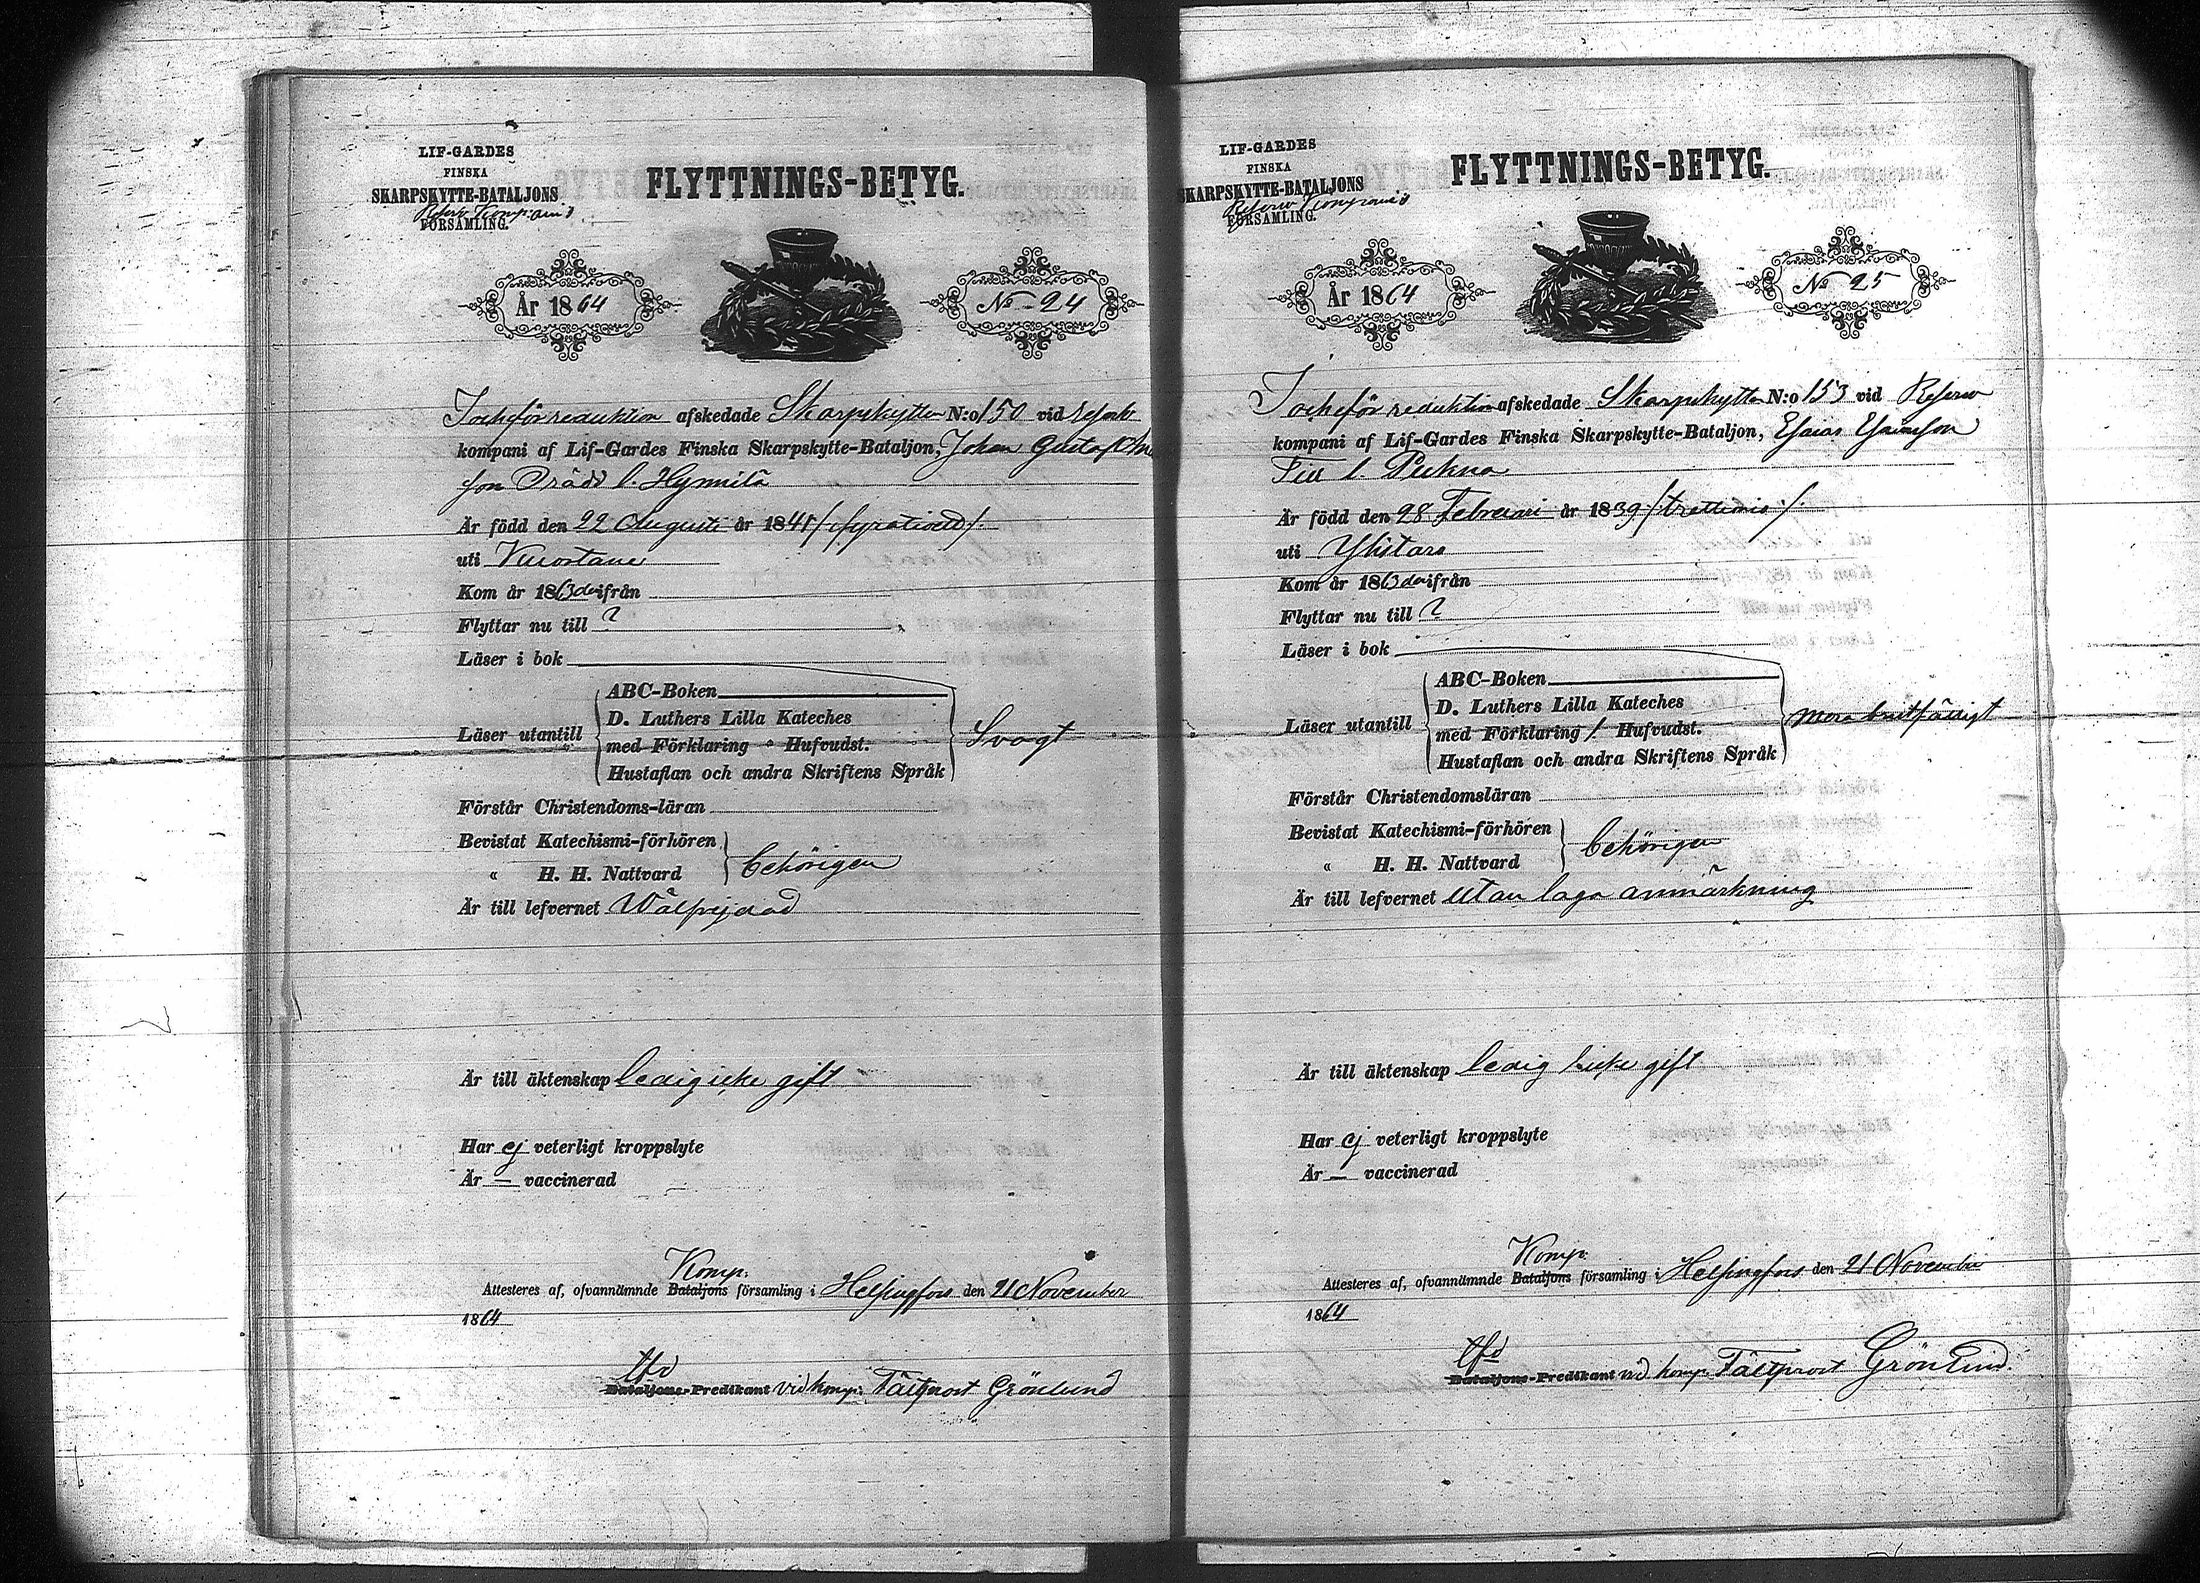 LIF-GARDES
FINSKA
SKARPSKYTTE-BATALJONS
Reserv Kompani
FÖRSAMLING.
FLYTTNINGS-BETYG.
År 1864
No 24
reduktion afskedade Skarpskytten N:o 150 vid
kompani af Lif-Gardes Finska Skarpskytte-Bataljon, Johan Gustaf
son
Är född den 22 Augusti år 1841
uti Kuortane
Kom år 1863 från
Flyttar nu till ?
Läser i bok
Läser utantill
ABC-Boken
D. Luthers Lilla Kateches
med Förklaring " Hufvudst.
Hustaflan och andra Skriftens Språk
Svagt
Förstår Christendoms-läran
Bevistat Katechismi-förhören
" H. H. Nattvard
behörigen
Är till lefvernet Välfrejdad
Är till äktenskap ledig icke gift
Har ej veterligt kroppslyte
Är — vaccinerad
Komp:
Attesteres af, ofvannämnde Bataljons församling i Helsingfors den 21 November
1864
tfd
Bataljons-Predikant vid komp: Fältprost Grönlund
LIF-GARDES
FINSKA
SKARPSKYTTE-BATALJONS
Reserv Kompani
FÖRSAMLING.
FLYTTNINGS-BETYG.
År 1864
No 25
reduktion afskedade Skarpskytten N:o 153 vid Reserv
kompani af Lif-Gardes Finska Skarpskytte-Bataljon, Esaias
Är född den 28 Februari år 1839 /: trettionio :/
uti Ylistaro
Kom år 1863 från
Flyttar nu till ?
Läser i bok
Läser utantill
ABC-Boken
D. Luthers Lilla Kateches
med Förklaring / Hufvudst.
Hustaflan och andra Skriftens Språk
mera bristfälligt
Förstår Christendomsläran
Bevistat Katechismi-förhören
" H. H. Nattvard
behörigen
Är till lefvernet utan laga anmärkning
Är till äktenskap ledig icke gift
Har ej veterligt kroppslyte
Är — vaccinerad
Komp:
Attesteres af, ofvannämnde Bataljons församling i Helsingfors den 21 November
1864
tfd
Bataljons-Predikant vid komp: Fältprost Grönlund.